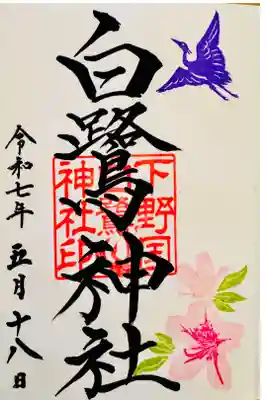 白鷺神社
下野国
白鷺
神社印
令和七年 五月十八日